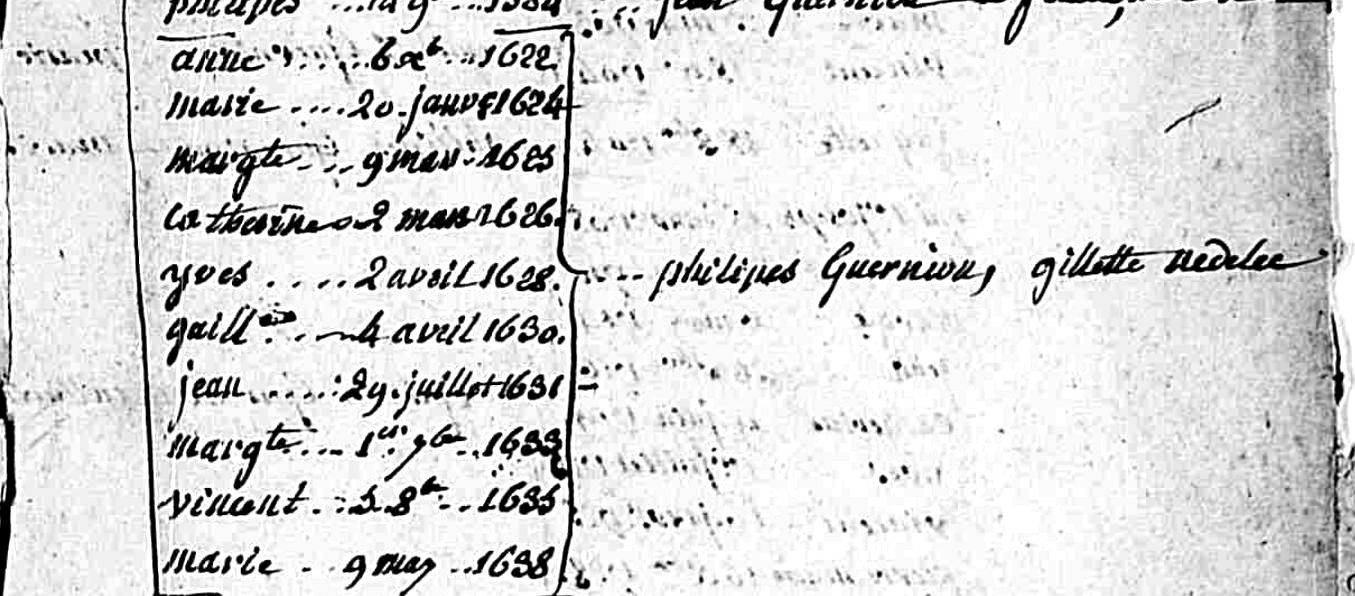 philipes .... 1584 .... jean Guerniou
anne ...... 6 xbr ... 1622.
marie .... 20. janvr 1624
margte ... 9 mars 1625
Catherine .. 2 mars 1626.
yves ..... 2 avril 1628. .... philipes Guerniou, gillette nedelec
guill ... 4 avril 1630.
jean ..... 29. juillet 1631
margte .... 1er 9br .. 1633
vincent . : 5. 8br .. 1635
marie .. 9 may .. 1638